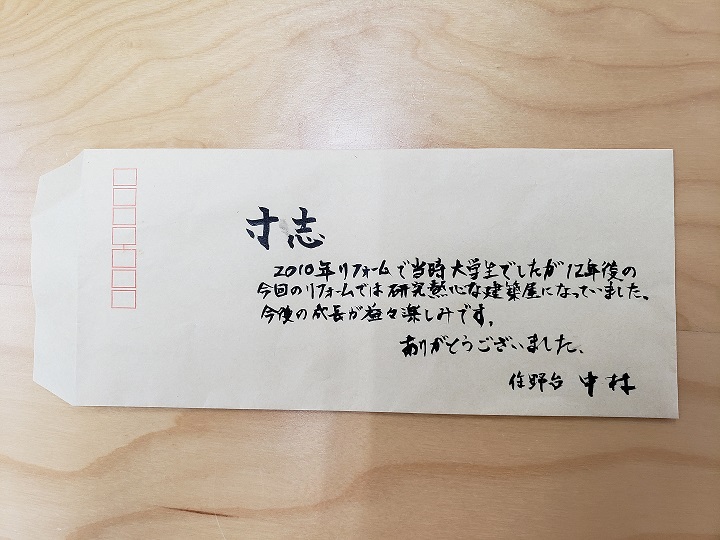 寸志
2010年リフォームで当時大学生でしたが12年後の
今回のリフォームでは研究熱心な建築屋になっていました。
今後の成長が益々楽しみです。
ありがとうございました。
住野台 中村